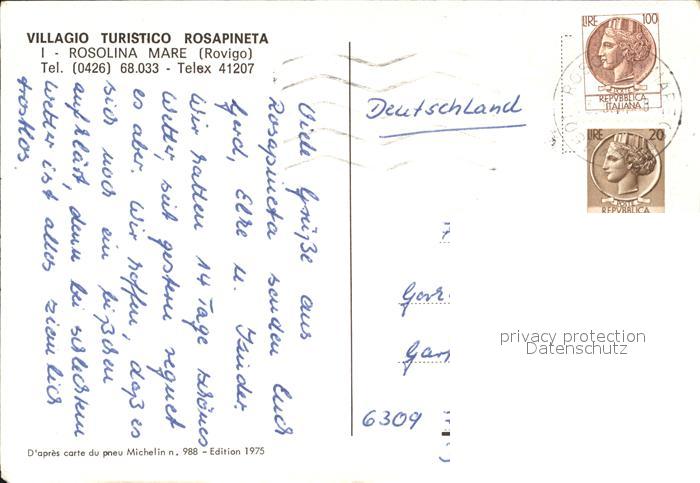 VILLAGIO TURISTICO ROSAPINETA
I - ROSOLINA MARE (Rovigo)
Tel. (0426) 68.033 - Telex 41207
Viele Grüße aus
Rosapineta senden Euch
Gerd, Elke u. Kinder.
Wir hatten 14 Tage schönes
Wetter, seit gestern regnet
es aber. Wir hoffen, daß es
sich noch ein bißchen
aufklärt, denn bei schlechtem
Wetter ist alles ziemlich
trostlos.
D'après carte du pneu Michelin n. 988 - Edition 1975
LIRE 100
REPVBBLICA
ITALIANA
LIRE 20
REPVBBLICA
Deutschland
6309
privacy protection
Datenschutz